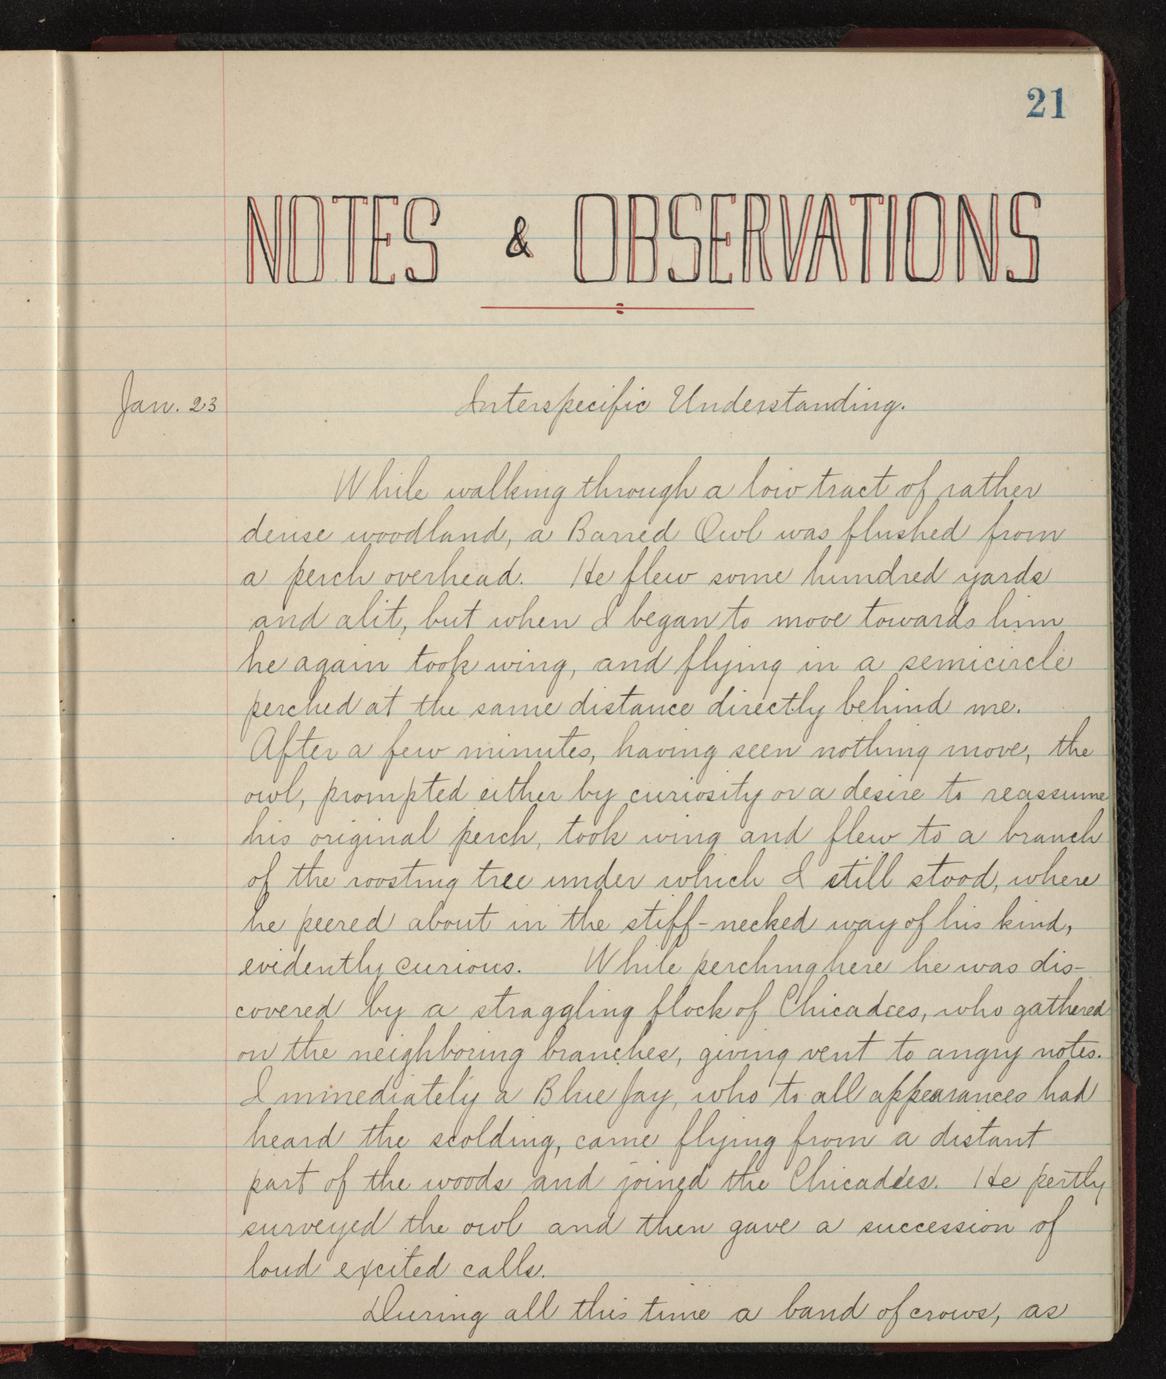 21
NOTES & OBSERVATIONS
Jan. 23 Interspecific Understanding.
While walking through a low tract of rather
dense woodland, a Barred Owl was flushed from
a perch overhead. He flew some hundred yards
and alit, but when I began to move towards him
he again took wing, and flying in a semicircle
perched at the same distance directly behind me.
After a few minutes, having seen nothing move, the
owl, prompted either by curiosity or a desire to reassume
his original perch, took wing and flew to a branch
of the roosting tree under which I still stood, where
he peered about in the stiff-necked way of his kind,
evidently curious. While perching here he was dis-
covered by a straggling flock of Chicadees, who gathered
on the neighboring branches, giving vent to angry notes.
Immediately a Blue Jay, who to all appearances had
heard the scolding, came flying from a distant
part of the woods and joined the Chicadees. He pertly
surveyed the owl and then gave a succession of
loud excited calls.
During all this time a band of crows, as